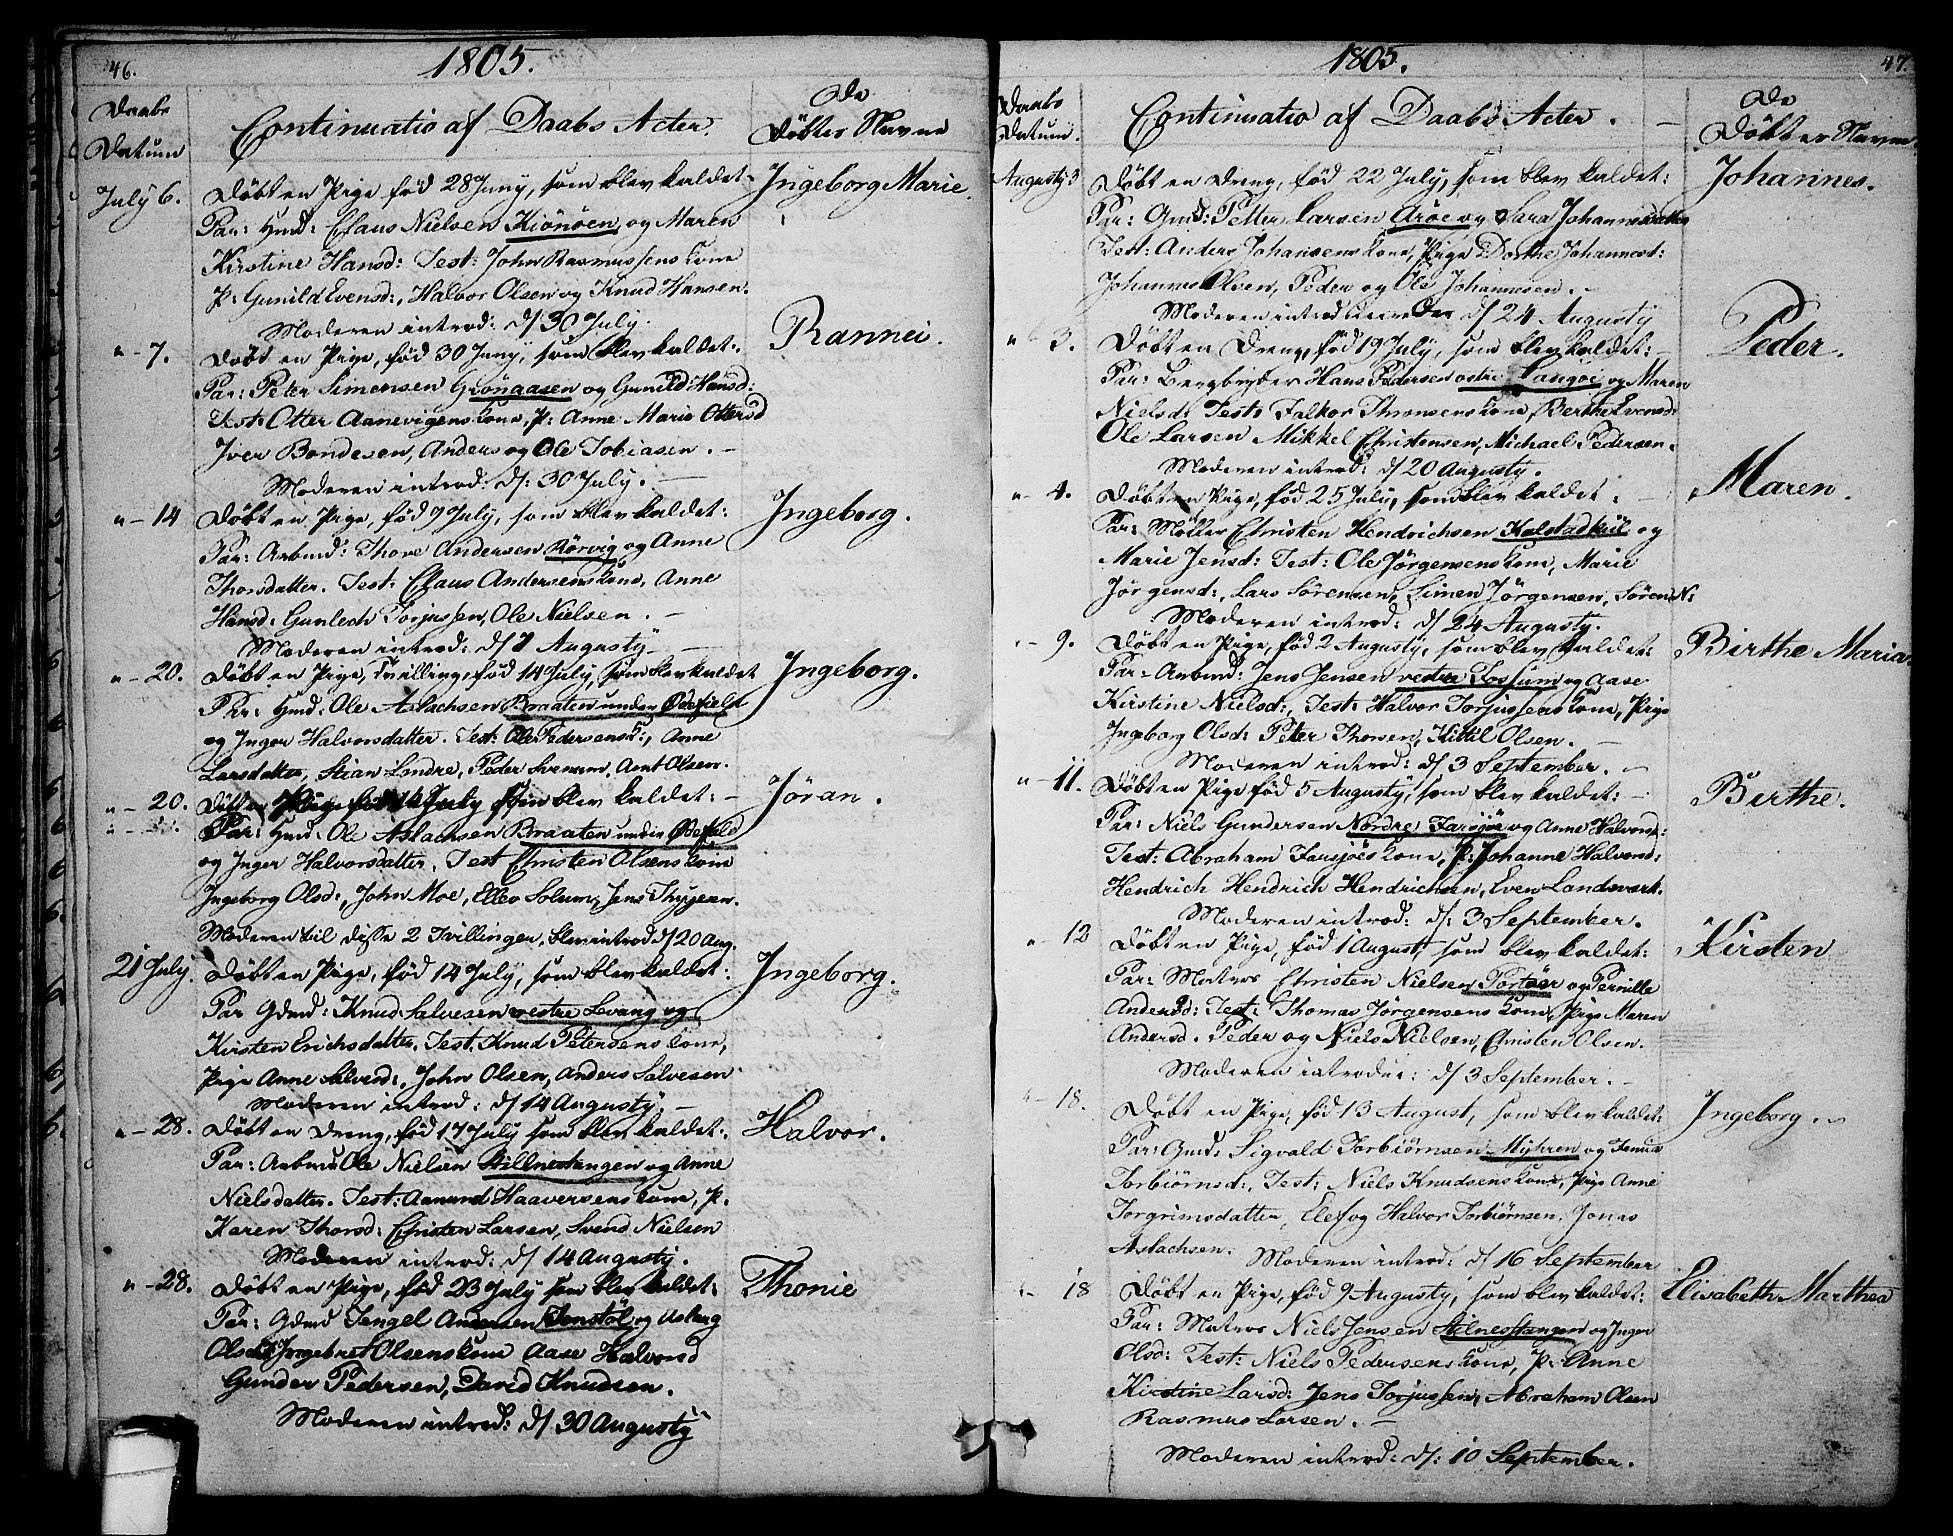 46.
1805.
Daabs
Datum
Continuatio af Daabs Acter.
De
Döbtes Navne
July 6.
Döbt en Pige föd 28 Juny, som blev kaldet:
Ingeborg Marie
Par: Hmd: Claus Nielsen Kiönöen, og Maren
Kirstine Hansd: Test: John Rasmussens kone
P: Gunild Evensd:, Halvor Olsen og Knud Hansen.
Moderen introd: d/ 30 July.
" - 7.
Döbt en Pige, föd 30 Juny, som blev kaldet:
Rannei.
Par: Peter Simensen Grönaasen og Gunild Hansd:
Test: Otter Aanevigens kone, P: Anne Marie Ottersd
Iver Bondesen, Anders og Ole Tobiasen. -
Moderen introd: d/: 30 July. -
" - 14
Döbt en Pige, föd 9 July, som blev kaldet:
Ingeborg.
Par: Arbmd: Thore Andersen Rörvig og Anne
Thorsdatter. Test: Claus Andersens kone, Anne
Hansd: Gunlech Torjussen, Ole Nielsen. -
Moderen introd: d/ 7 Augusty -
" - 20.
Döbt en Pige, Tvilling, föd 14 July, som blev kaldet
Ingeborg.
Par: Hmd: Ole Aslachsen Braaten under Ödefield
og Inger Halvorsdatter. Test: Ole Pedersens k:, Anne
Larsdatter, Stian Londre, Peder Svensen, Arnt Olsen.
" - 20.
Döbt en Pige föd 14 July som blev kaldet: -
Jöran.
Par: Hmd: Ole Aslachsen Braaten under Ödefield
og Inger Halvorsdatter. Test Christen Olsens kone
Ingeborg Olsd:, John Moe, Ellev Solum, Jens Thygesen.
Moderen til disse 2 Tvillinger, blev introd d/ 20 Aug.
21 July.
Döbt en Pige, föd 14 July, som blev kaldet:
Ingeborg.
Par Gdmd: Knud Salvesen vestre Levang og
Kirsten Erichsdatter. Test. Knud Petersens kone,
Pige Anne Salvesd:, John Olsen, Anders Salvesen
Moderen introd: d/ 14 Augusty. -
" - 28.
Döbt en Dreng, föd 17 July som blev kaldet:
Halvor.
Par: Arbmd Ole Nielsen Stillnestangen og Anne
Nielsdatter. Test: Aamund Haaversens kone, P.
Karen Thorsd: Christen Larsen, Svend Nielsen
Moderen introd: d/ 14 Augusty.
" - 28.
Döbt en Pige, föd 23 July som blev kaldet:
Thonie
Par: Gdmd Tengel Andersen Tonstöl og Aslaug
Olsd: Ingebret Olsens kone Aase Halvorsd
Gunder Pedersen, David Knudsen.
Moderen introd: d/ 30 Augusty
1805.
47.
Daabs
Datum.
Continuatio af Daabs Acter. -
De
Döbtes Navne
Augusty 3
Döbt en Dreng, föd 22 July, som blev kaldet:
Johannes.
Par: Gmd: Petter Larsen Aröe og Sara Johannesdatter
Test: Anders Johansens kone, Pige Dorthe Johannesd:
Johannes Olsen, Peder og Ole Johannesen. -
Moderen d/ 24 Augusty
" 3.
Döbt en Dreng, föd 19 July, som blev kaldet:
Peder.
Par: Bergbryter Hans Pedersen ostre Langöe og Maren
Nielsd: Test: Falkor Thronsens kone, Berthe Evensd:
Ole Larsen Mikkel Christensen, Michael Pedersen.
Moderen introd: d/ 20 Augusty.
" - 4.
Döbt en Pige, föd 25 July, som blev kaldet: -
Maren.
Par: Möller Christen Hendrichsen Kalstadkiil og
Marie Jensd: Test: Ole Jörgensens kone, Marie
Jörgensd:, Lars Sörensen, Simen Jörgensen, Sören N:
Moderen introd: d/ 24 Augusty.
" - 9.
Döbt en Pige, föd 2 Augusty, som blev kaldet:
Birthe Maria.
Par: Arbmd: Jens Jensen vestre Fossum og Aase
Kirstine Nielsd:, Test: Halvor Torjussens kone, Pige
Ingeborg Olsd: Peter Thorsen, Kittil Olsen. -
Moderen introd: d/ 3 September. -
" - 11.
Döbt en Pige föd 5 Augusty, som blev kaldet: -
Birthe.
Par: Niels Gundersen Nordre Farsjöe og Anne Halvorsd:
Test: Abraham Farsjöes kone, P: Johanne Halvorsd:
Hendrich Hendrich Hendrichsen, Even Landsverk.
Moderen introd: d/: 3 September.
" - 12
Döbt en Pige, föd 1 August, som blev kaldet:
Kirsten
Par: Matros Christen Nielsen Portöer og Pernille
Andersd: Test: Thomas Jörgensens kone, Pige Maren
Andersd. Peder og Niels Nielsen, Christen Olsen.
Moderen introdu: d/ 3 September. -
" - 18.
Döbt en Pige, föd 13 August, som blev kaldet:
Ingeborg. -
Par: Gmd: Sigvald Torbiörnsen Myhren og
Torbiörnsd:, Test: Niels Knudsens kone, Pige Anne
Torgrimsdatter, Elef og Halvor Torbiörnsen, Jonas
Aslachsen: Moderen introd: d/ 16 September
" - 18
Döbt en Pige, föd 9 Augusty, som blev kaldet:
Elisabeth Marthea
Par: Matros Niels Jensen Stilnesstangen og Inger
Olsd: Test: Niels Pedersens kone, P: Anne
Kirstine Larsd: Jens Torjussen, Abraham Olsen
Rasmus Larsen. -
Moderen introd: d/: 10 September.